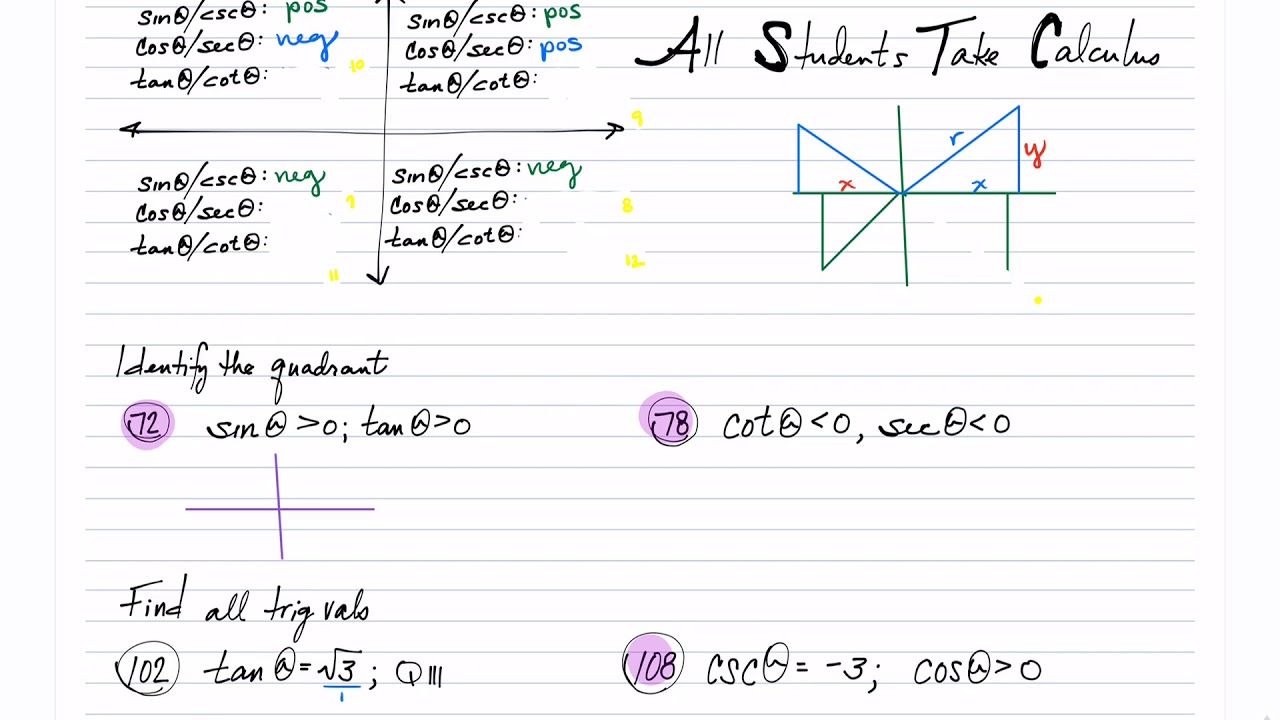 sinθ/cscθ: pos
cosθ/secθ: neg
tanθ/cotθ:
10
sinθ/cscθ: pos
cosθ/secθ: pos
tanθ/cotθ:
9
sinθ/cscθ: neg
cosθ/secθ:
tanθ/cotθ:
7
11
sinθ/cscθ: neg
cosθ/secθ:
tanθ/cotθ:
8
12
All Students Take Calculus
r
y
x
x
Identify the quadrant
72 sinθ >0; tanθ>0
78 cotθ<0, secθ<0
Find all trig vals
102 tanθ = √3/1 ; QIII
108 cscθ = -3; cosθ>0